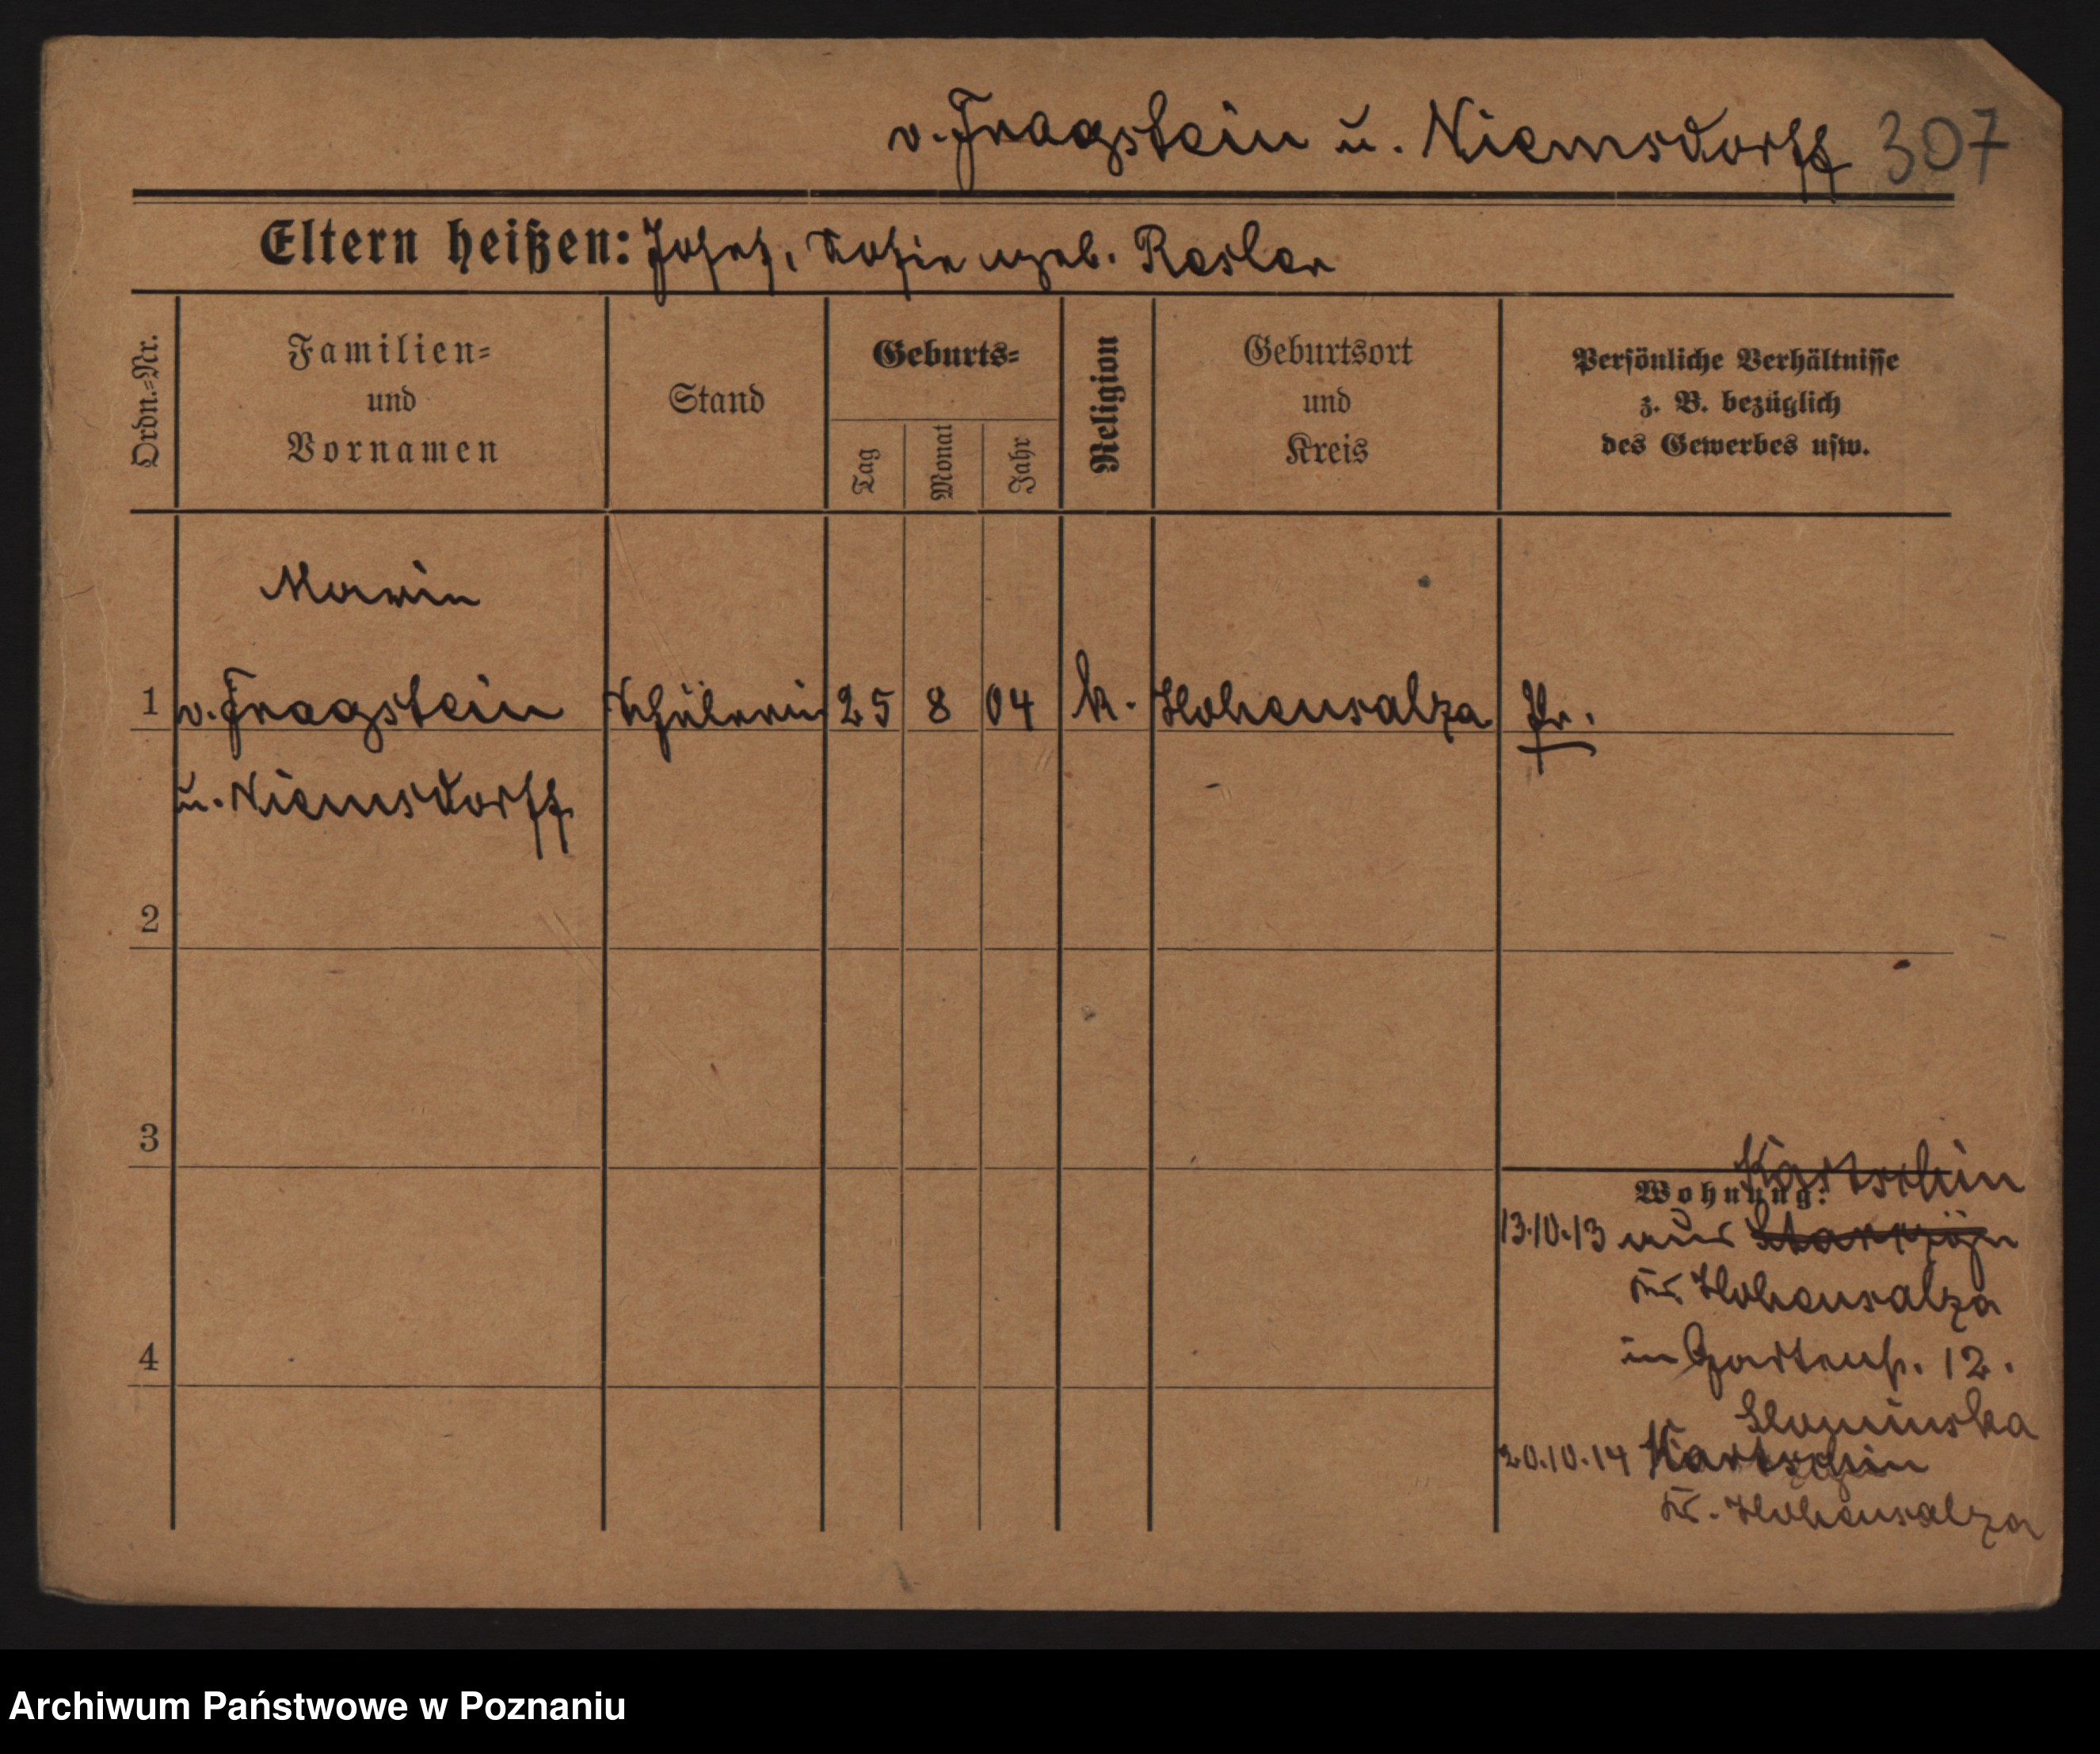 v. Fragstein u. Niemsdorff 307
Eltern heißen: Josef, Sofie geb. Resler
Ordn.=Nr.
Familien=
und
Vornamen
Stand
Geburts=
Tag
Monat
Jahr
Religion
Geburtsort
und
Kreis
Persönliche Verhältnisse
z. B. bezüglich
des Gewerbes usw.
1
v. Fragstein Schülerin 25 8 04 k. Hohensalza Pr.
u. Niemsdorff
2
3
4
Wohnung:
13.10.13 aus
Kr. Hohensalza
in Gartenstr. 12.
Slominska
20.10.14 Kartschin
Kr. Hohensalza
Archiwum Państwowe w Poznaniu